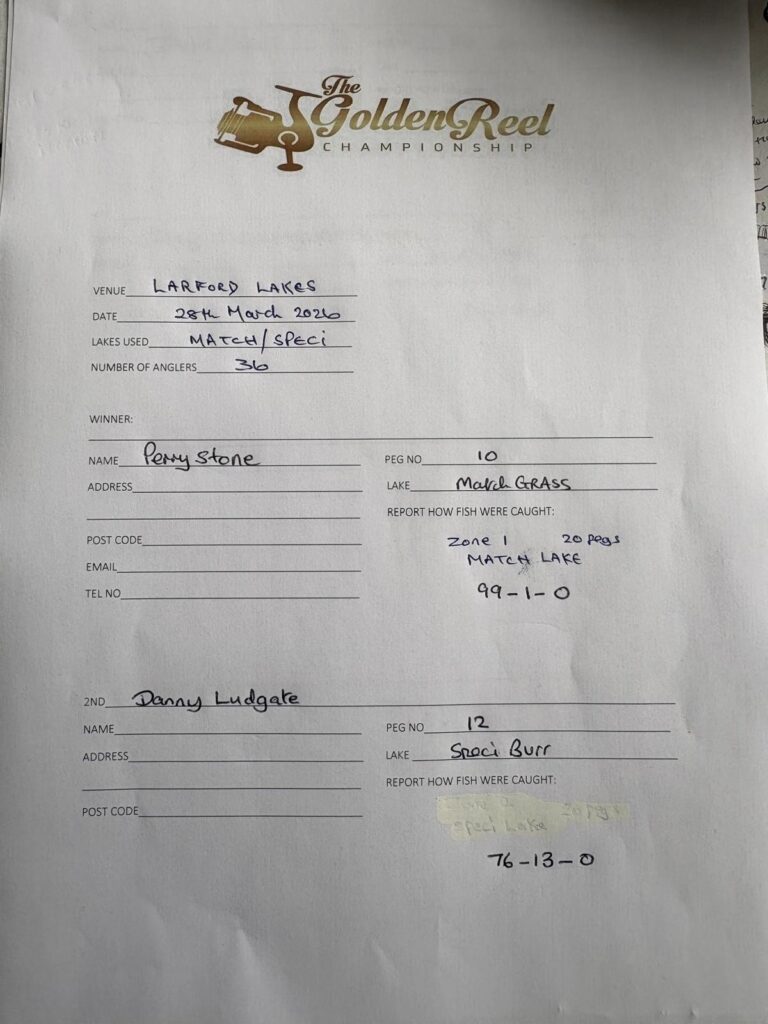 The
Golden Reel
CHAMPIONSHIP
VENUE LARFORD LAKES
DATE 28th March 2026
LAKES USED MATCH/SPECI
NUMBER OF ANGLERS 36
WINNER:
NAME Perry Stone
PEG NO 10
ADDRESS
LAKE Match GRASS
REPORT HOW FISH WERE CAUGHT:
POST CODE
Zone 1 20 pegs
MATCH LAKE
EMAIL
TEL NO
99-1-0
2ND Danny Ludgate
NAME
PEG NO 12
ADDRESS
LAKE Speci Burr
REPORT HOW FISH WERE CAUGHT:
POST CODE
20 pegs
Speci Lake
76-13-0